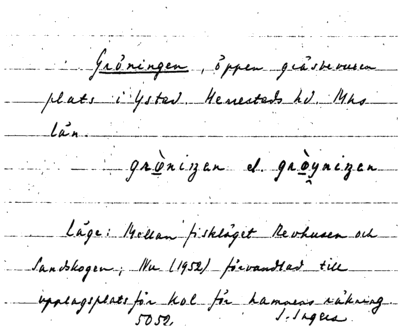 Gröningen, öppen gräsbevuxen
plats i Ystad. Herrestads hd. Mhs
län.
grø̀niŋən el. grø̀yniŋən
Läge: Mellan fiskläget Revhusen och
Sandskogen; Nu (1952) förvandlad till
upplagsplats för kol för hamnens räkning
5052. I. Ingers